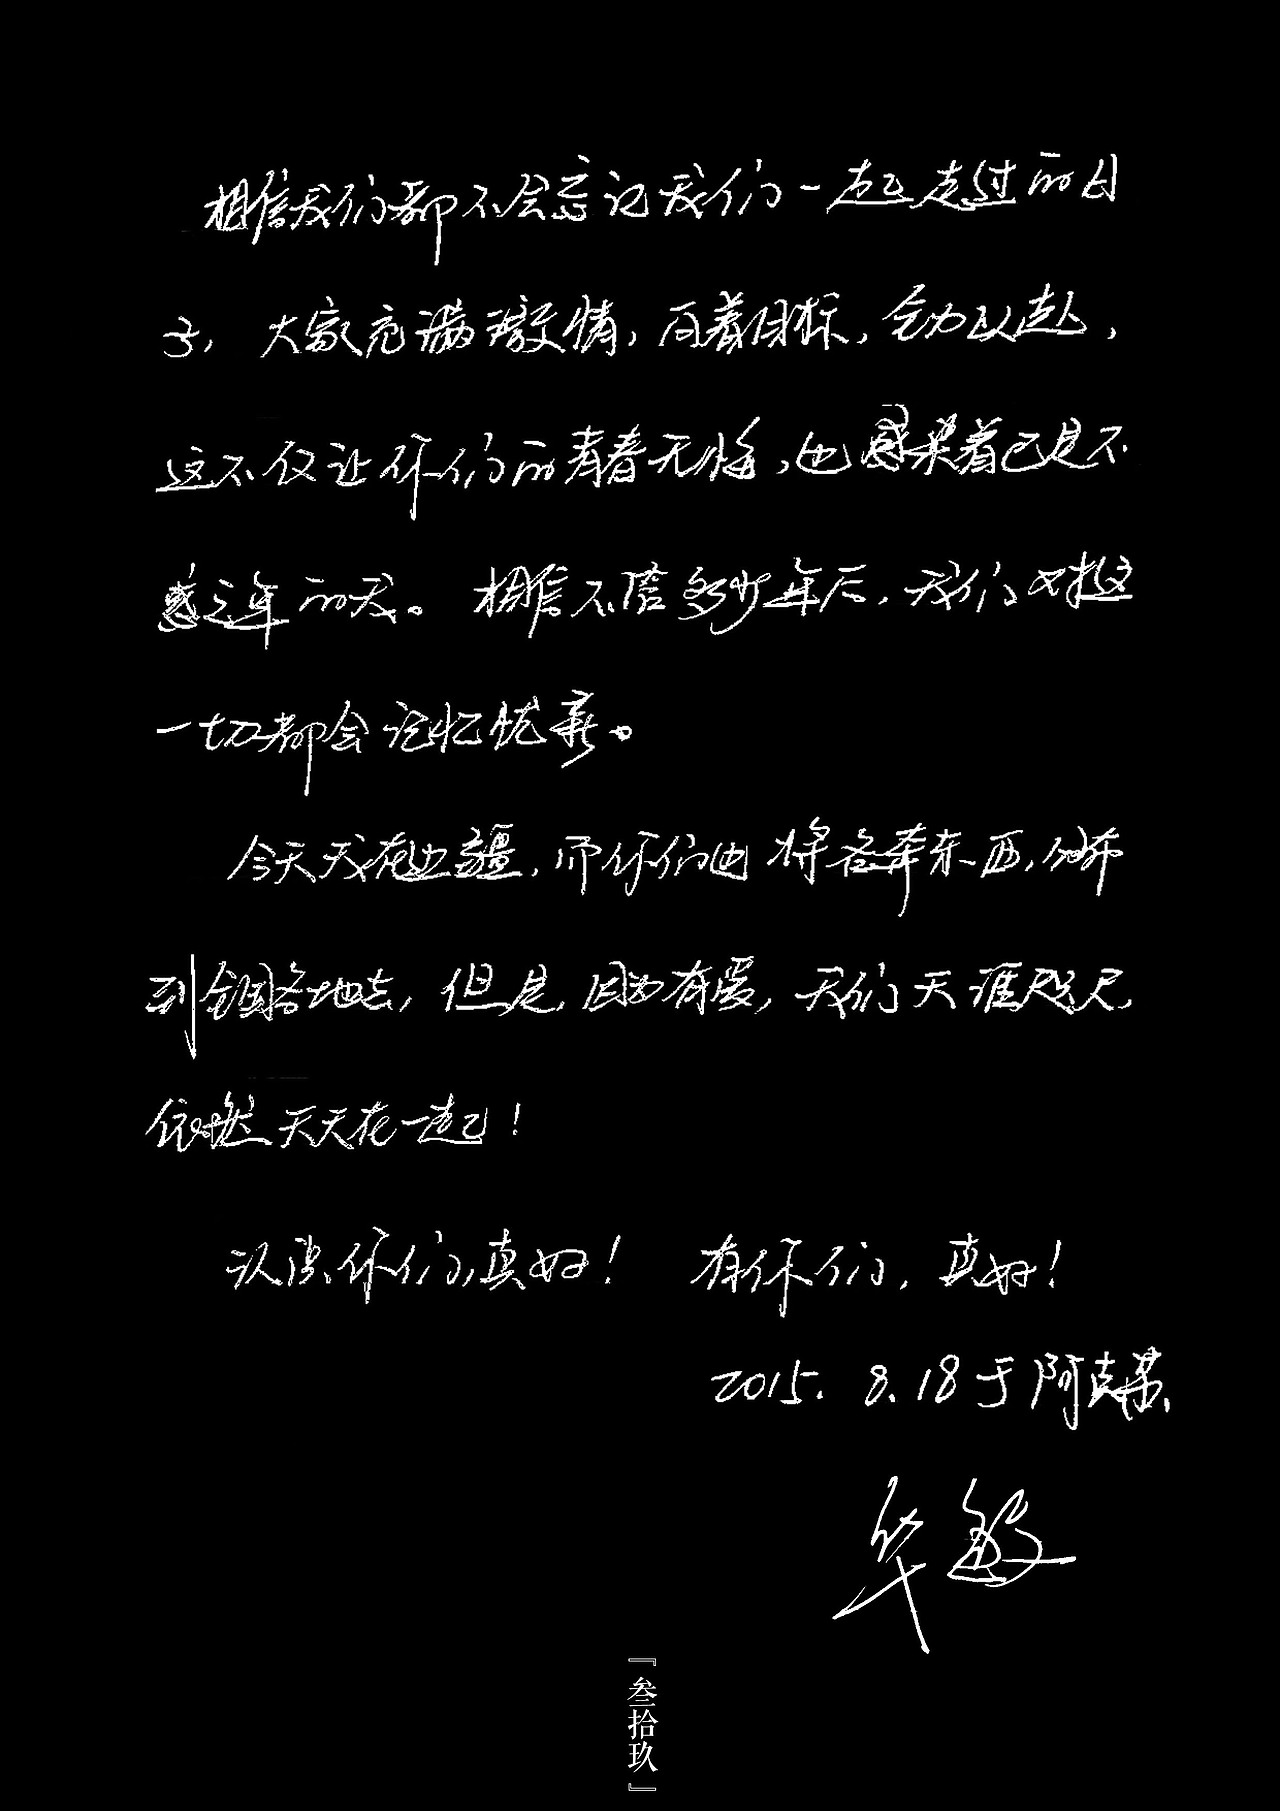 相信我们都不会忘记我们一起走过的日
子，大家充满激情，向着目标，全力以赴，
这不仅让你们的青春无悔，也感染着已是不
惑之年的我。相信不管多少年后，我们对这
一切都会记忆犹新。
今天我在边疆，而你们也将各奔东西，分布
到全国各地去，但是，因为有爱，我们天涯咫尺，
依然天天在一起！
认识你们，真好！ 有你们，真好！
2015.8.18于阿克苏
华敏
『叁拾玖』